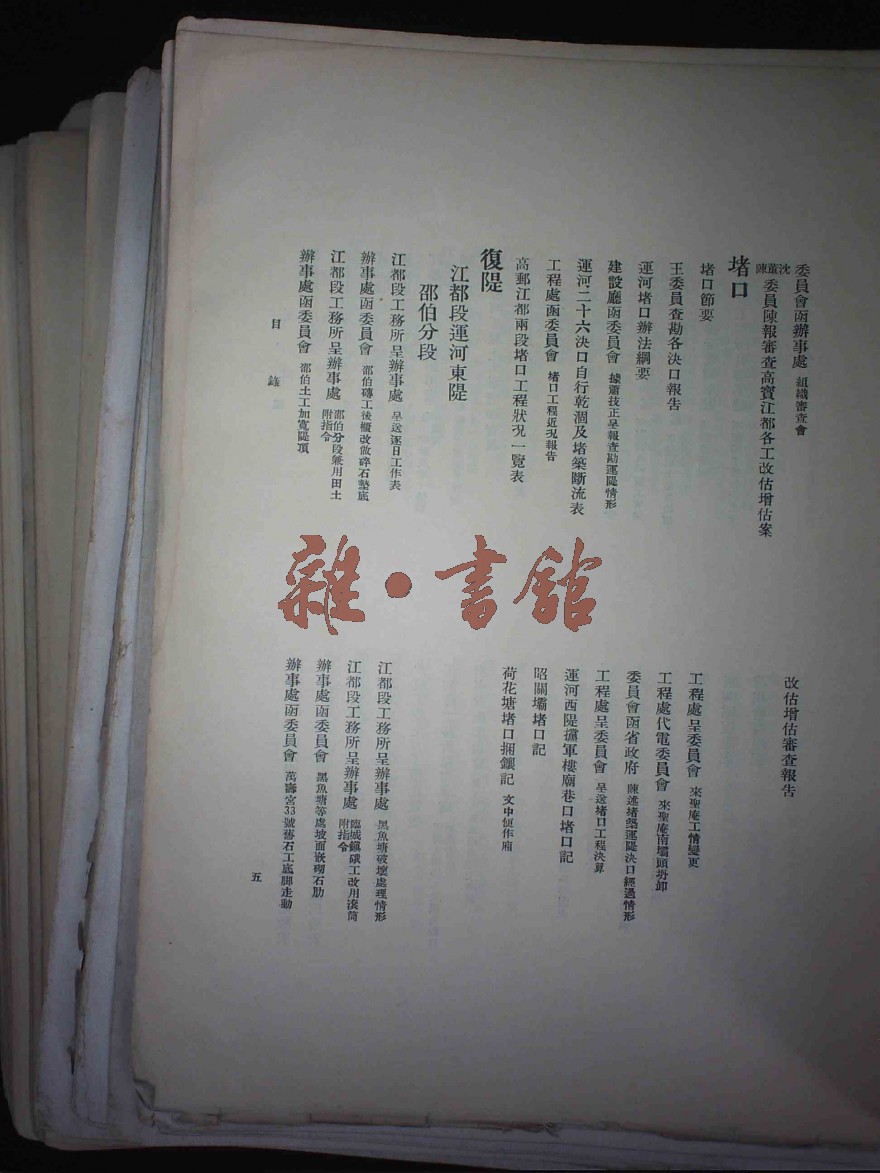 委員會函辦事處 組織審查會
沈董陳委員陳報審查高寶江都各工改估增估案
堵口
堵口節要
王委員查勘各決口報告
運河堵口辦法綱要
建設廳函委員會 據蕭技正呈報查勘運隄情形
運河二十六決口自行乾涸及堵築斷流表
工程處函委員會 堵口工程近況報告
高郵江都兩段堵口工程狀況一覽表
復隄
江都段運河東隄
邵伯分段
江都段工務所呈辦事處 呈送逐日工作表
辦事處函委員會 邵伯磚工後櫃改做碎石墊底
江都段工務所呈辦事處 邵伯分段兼用田土 附指令
辦事處函委員會 邵伯土工加寬隄頂
目 錄
改估增估審查報告
工程處呈委員會 來聖庵工情變更
工程處代電委員會 來聖庵南壩頭坍卸
委員會函省政府 陳述堵築運隄決口經過情形
工程處呈委員會 呈送堵口工程決算
運河西隄攩軍樓廟巷口堵口記
昭關壩堵口記
荷花塘堵口捆鑲記 文中便作廂
江都段工務所呈辦事處 黑魚塘破壞處理情形
江都段工務所呈辦事處 臨城鎮硪工改用滾筒 附指令
辦事處函委員會 黑魚塘等處坡面嵌砌石肋
辦事處函委員會 萬壽宮33號舊石工底脚走動
五
雜·書館